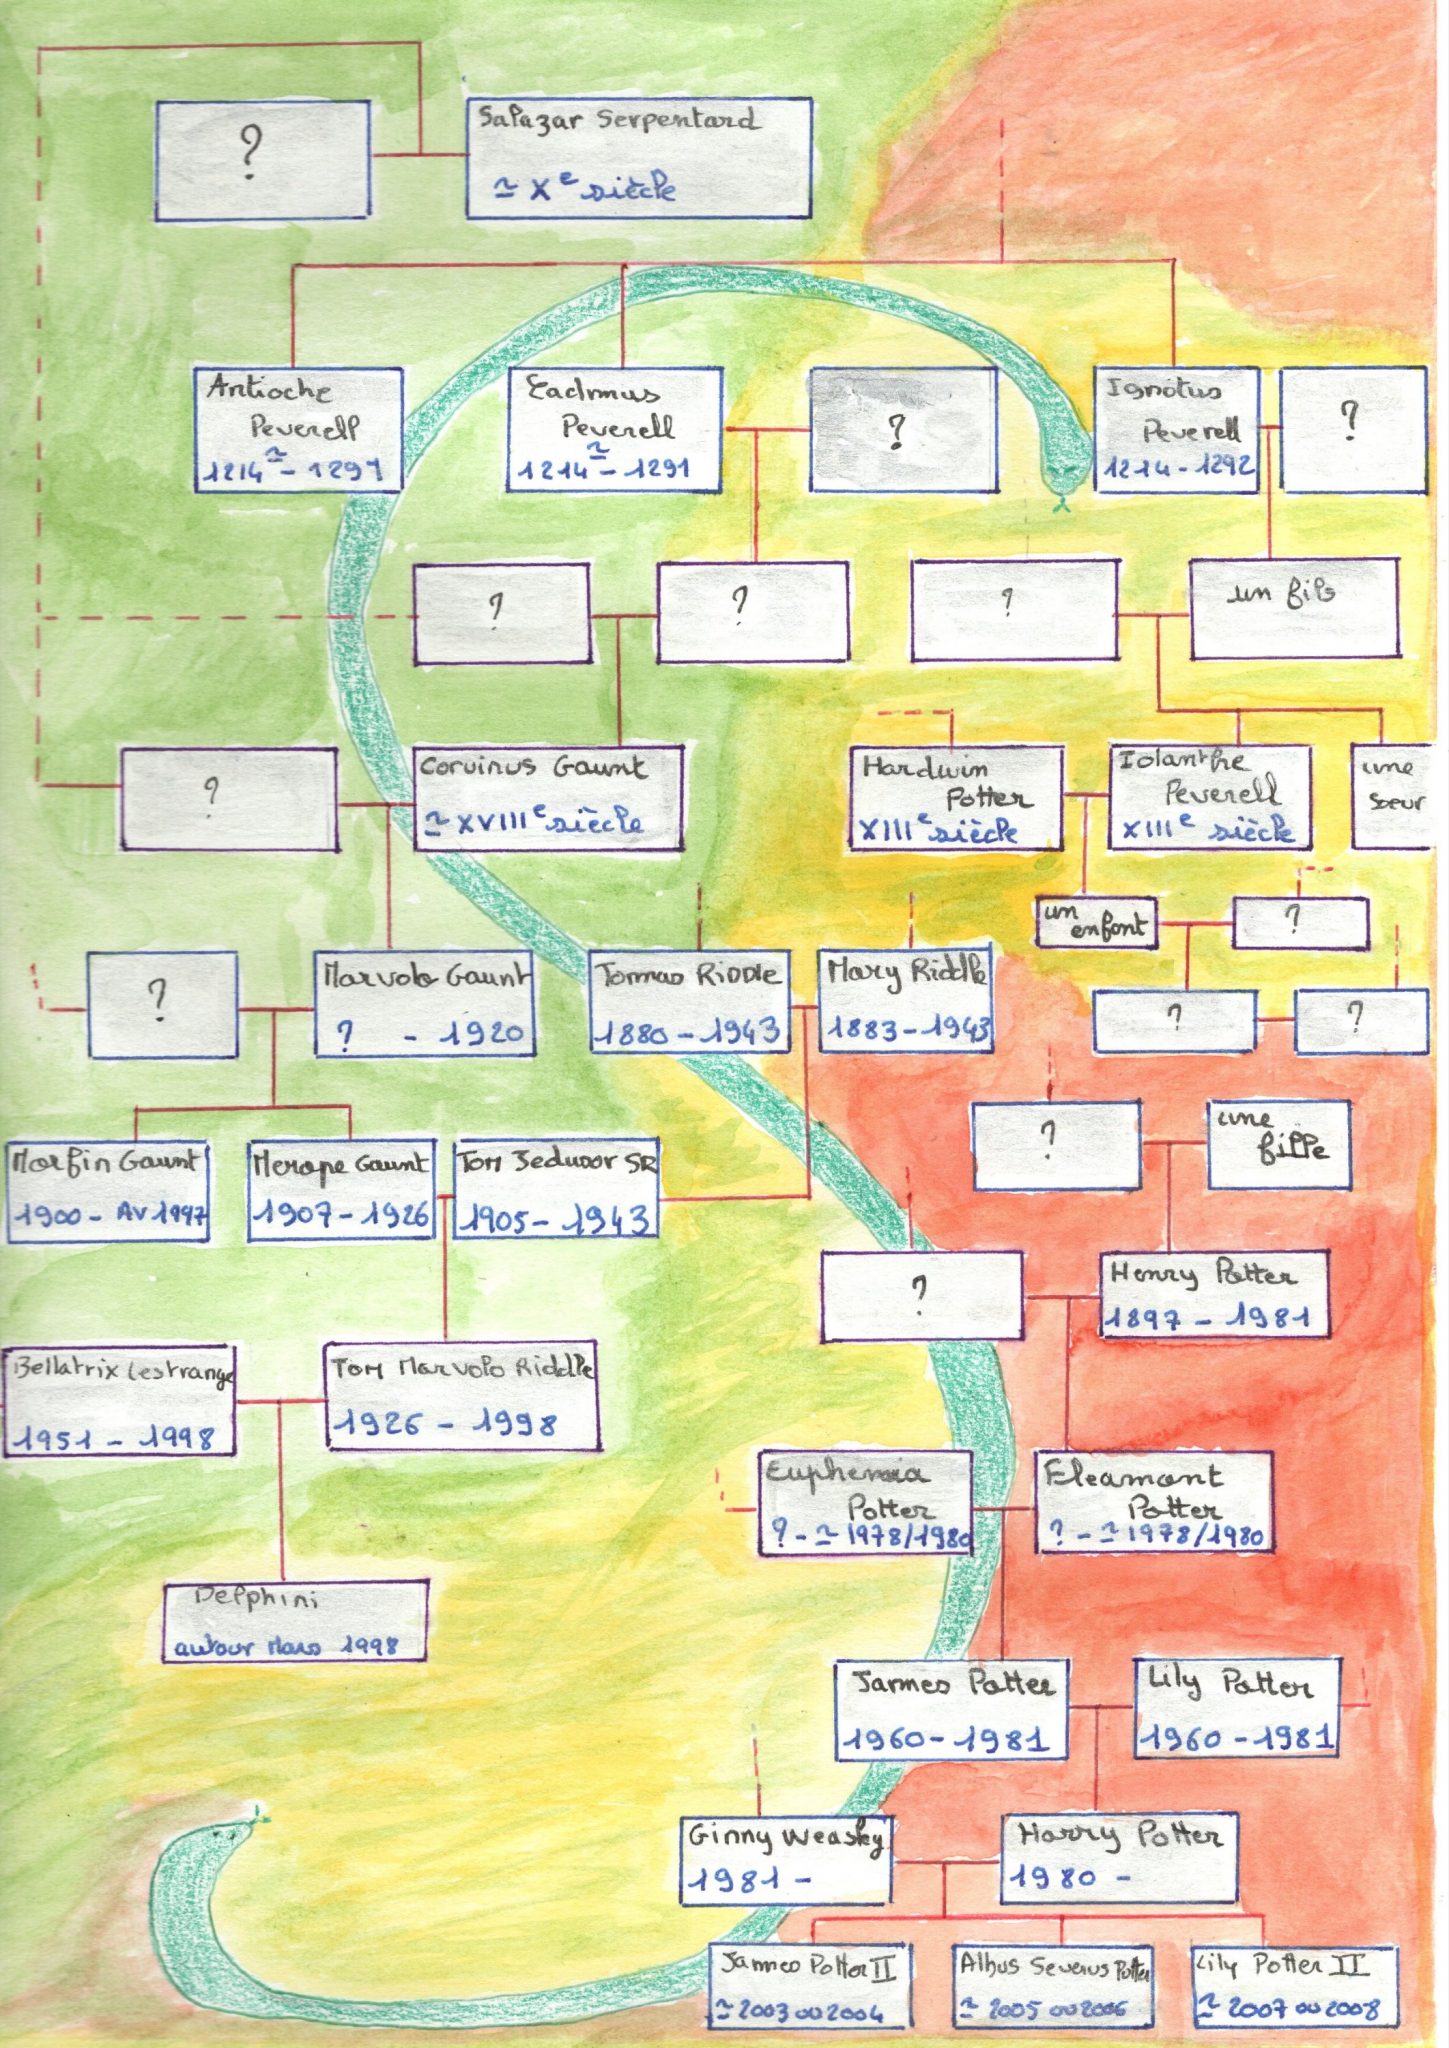 ?
Salazar Serpentard
≃ Xe siècle
Antioche
Peverell
1214≃ - 1291
Eadmus
Peverell
1214≃ - 1291
?
Ignotus
Peverell
1214 - 1292
?
?
?
?
un fils
?
Corvinus Gaunt
≃ XVIIIe siècle
Hardwin
Potter
XIIIe siècle
Iolanthe
Peverell
XIIIe siècle
une
soeur
un
enfant
?
?
Marvolo Gaunt
? - 1920
Tomas Riddle
1880 - 1943
Mary Riddle
1883 - 1943
?
?
?
une
fille
Morfin Gaunt
1900 - AV 1997
Merope Gaunt
1907 - 1926
Tom Jedusor SR
1905 - 1943
?
Henry Potter
1897 - 1981
Bellatrix Lestrange
1951 - 1998
Tom Marvolo Riddle
1926 - 1998
Euphemia
Potter
? - ≃ 1978/1980
Fleamont
Potter
? - ≃ 1978/1980
Delphini
autour Mars 1998
James Potter
1960 - 1981
Lily Potter
1960 - 1981
Ginny Weasley
1981 -
Harry Potter
1980 -
James Potter II
≃ 2003 ou 2004
Albus Severus Potter
≃ 2005 ou 2006
Lily Potter II
≃ 2007 ou 2008